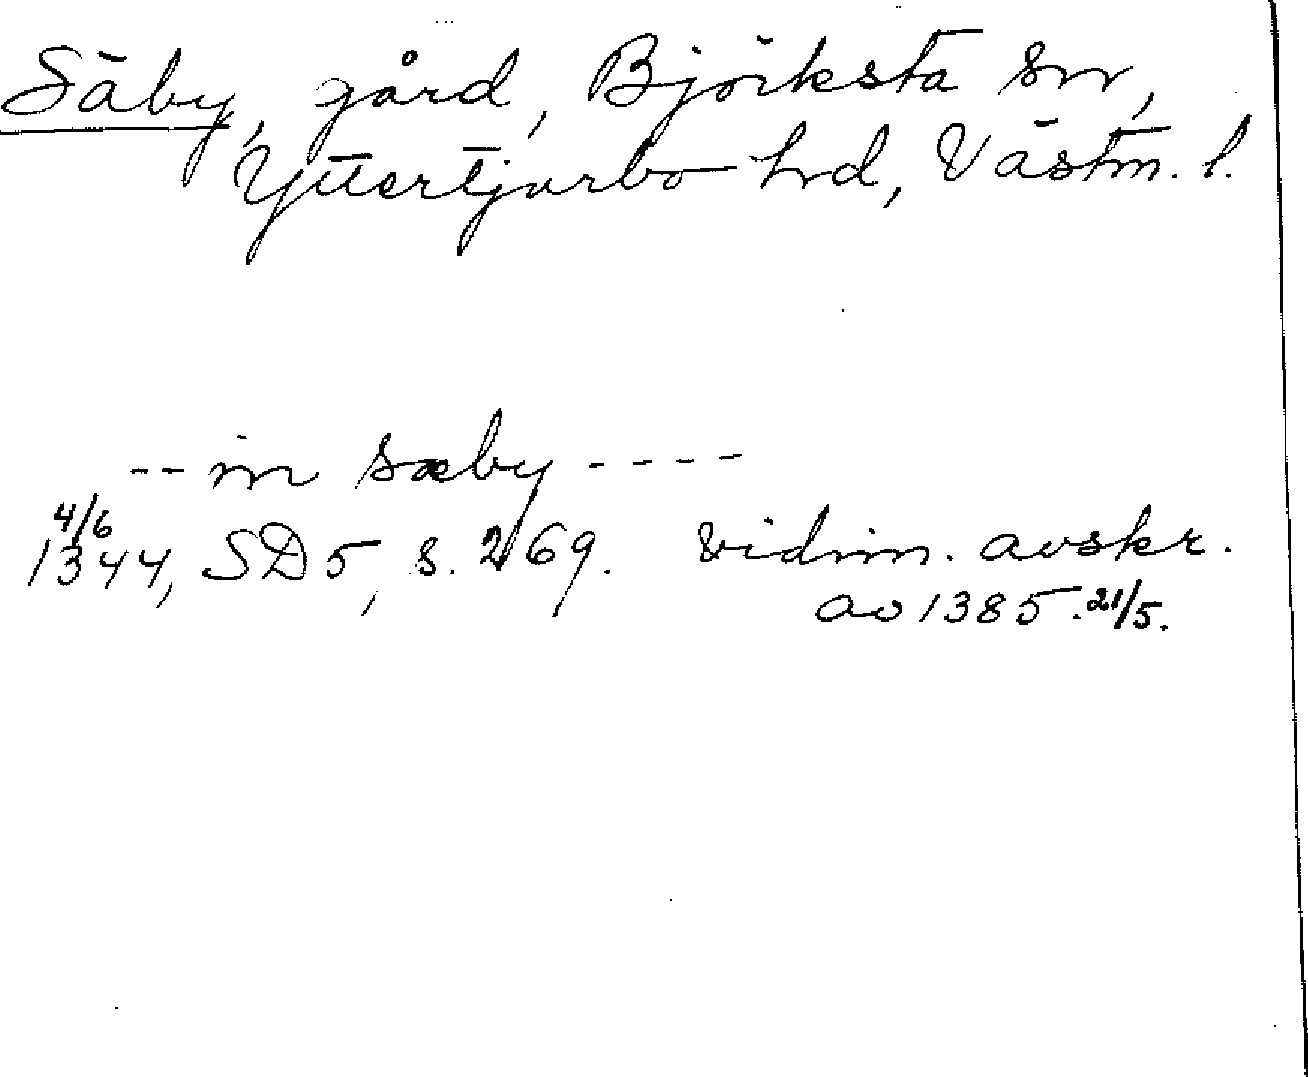 Säby, gård, Björksta sn,
Yttertjurbo hrd, Västm. l.
-- in sæby ----
4/6
1344, SD 5, s. 269. vidim. avskr.
av 1385. 21/5.